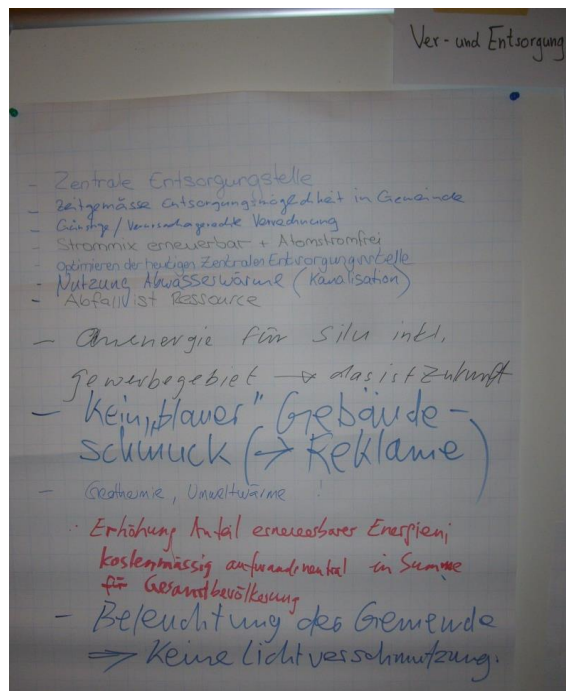 Ver- und Entsorgung
- Zentrale Entsorgungstelle
- Zeitgemässe Entsorgungsmöglichkeit in Gemeinde
- Günstige / Verursachergerechte Verrechnung
- Strommix erneuerbar + Atomstromfrei
- Optimieren der heutigen Zentralen Entsorgungsstelle
- Nutzung Abwasserwärme (Kanalisation)
- Abfall ist Ressource
- für Silu inkl.
gewerbegebiet → das ist Zukunft
- Kein „blauer" Gebäude-
schmuck (→ Reklame)
- Geothermie, Umweltwärme !
Erhöhung Anteil erneuerbarer Energien;
kostenmässig aufwandneutral in Summe
für Gesamtbevölkerung
- Beleuchtung der Gemeinde
⇒ Keine Lichtverschmutzung.